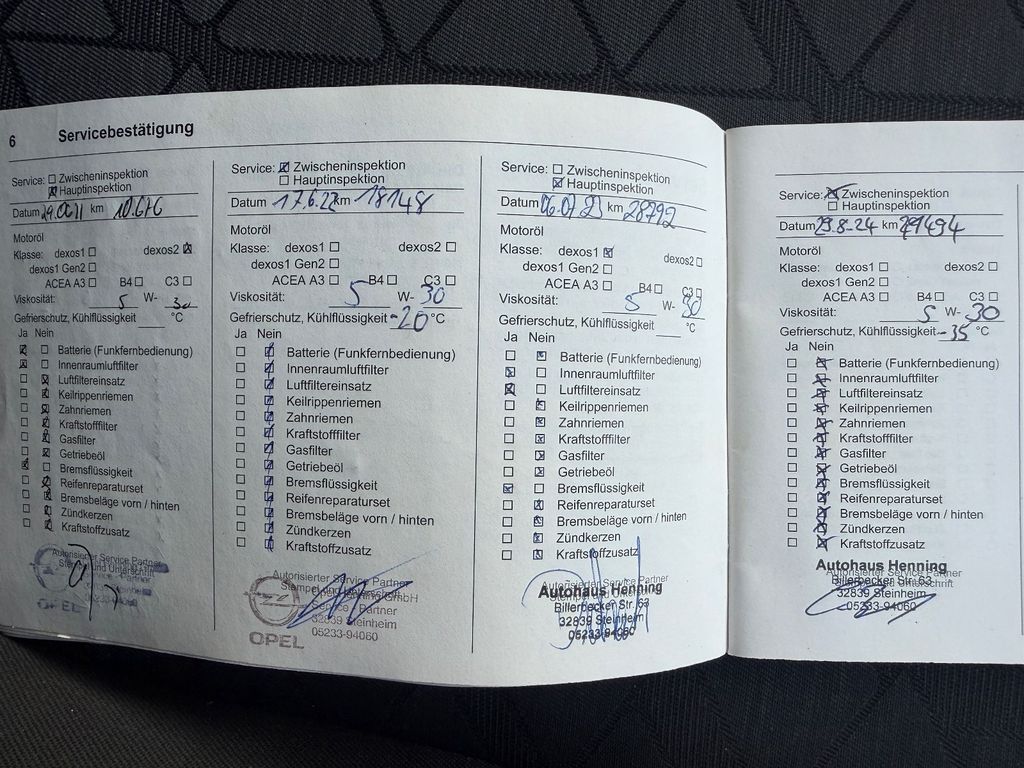 6 Servicebestätigung
Service: Zwischeninspektion
Hauptinspektion
Datum km 10.676
Motoröl
Klasse: dexos1 dexos2
dexos1 Gen2
ACEA A3 B4 C3
Viskosität: 5 W- 30
Gefrierschutz, Kühlflüssigkeit °C
Ja Nein
Batterie (Funkfernbedienung)
Innenraumluftfilter
Luftfiltereinsatz
Keilrippenriemen
Zahnriemen
Kraftstofffilter
Gasfilter
Getriebeöl
Bremsflüssigkeit
Reifenreparaturset
Bremsbeläge vorn / hinten
Zündkerzen
Kraftstoffzusatz
Autorisierter Service Partner
OPEL
Service: Zwischeninspektion
Hauptinspektion
Datum 17.6.22 km 18148
Motoröl
Klasse: dexos1 dexos2
dexos1 Gen2
ACEA A3 B4 C3
Viskosität: 5 W- 30
Gefrierschutz, Kühlflüssigkeit -20 °C
Ja Nein
Batterie (Funkfernbedienung)
Innenraumluftfilter
Luftfiltereinsatz
Keilrippenriemen
Zahnriemen
Kraftstofffilter
Gasfilter
Getriebeöl
Bremsflüssigkeit
Reifenreparaturset
Bremsbeläge vorn / hinten
Zündkerzen
Kraftstoffzusatz
Autorisierter Service Partner
Service Partner
32839 Steinheim
05233-94060
OPEL
Service: Zwischeninspektion
Hauptinspektion
Datum 06.07.23 km 28792
Motoröl
Klasse: dexos1 dexos2
dexos1 Gen2
ACEA A3 B4 C3
Viskosität: 5 W- 30
Gefrierschutz, Kühlflüssigkeit °C
Ja Nein
Batterie (Funkfernbedienung)
Innenraumluftfilter
Luftfiltereinsatz
Keilrippenriemen
Zahnriemen
Kraftstofffilter
Gasfilter
Getriebeöl
Bremsflüssigkeit
Reifenreparaturset
Bremsbeläge vorn / hinten
Zündkerzen
Kraftstoffzusatz
Autorisierter Service Partner
Autohaus Henning
Billerbecker Str. 63
32839 Steinheim
05233-94060
Service: Zwischeninspektion
Hauptinspektion
Datum 29.8-24 km
Motoröl
Klasse: dexos1 dexos2
dexos1 Gen2
ACEA A3 B4 C3
Viskosität: 5 W- 30
Gefrierschutz, Kühlflüssigkeit -35 °C
Ja Nein
Batterie (Funkfernbedienung)
Innenraumluftfilter
Luftfiltereinsatz
Keilrippenriemen
Zahnriemen
Kraftstofffilter
Gasfilter
Getriebeöl
Bremsflüssigkeit
Reifenreparaturset
Bremsbeläge vorn / hinten
Zündkerzen
Kraftstoffzusatz
Autohaus Henning
Autorisierter Service Partner
Billerbecker Str. 63
32839 Steinheim
05233-94060